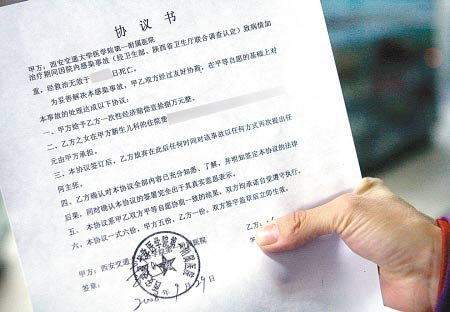 协议书
甲方：西安交通大学医学院第一附属医院
治疗期间因院内感染事故（经卫生部、陕西省卫生厅联合调查认定）致病情加
重，经救治无效于 日死亡。
为妥善解决本感染事故，甲乙双方经过友好协商，在平等自愿的基础上对
本事故的处理达成以下协议：
一、甲方给予乙方一次性经济赔偿壹拾捌万元整。
二、乙方之女在甲方新生儿科的住院费
元由甲方承担。
三、本协议签订后，乙方放弃在此后任何时间对该事故以任何方式再次提出任
何主张。
四、乙方确认对本协议全部内容已充分知悉、了解，并明知签定本协议的法律
后果，同时确认本协议的签署完全出于其真实意思表示。
五、本协议系甲乙双方平等自愿协商一致的结果，双方均承诺自觉遵守执行。
六、本协议一式六份，甲方五份，乙方一份，双方签字盖章后立即生效。
甲方：西安交通 医院 乙方：
签章： 签
2008年9月29日